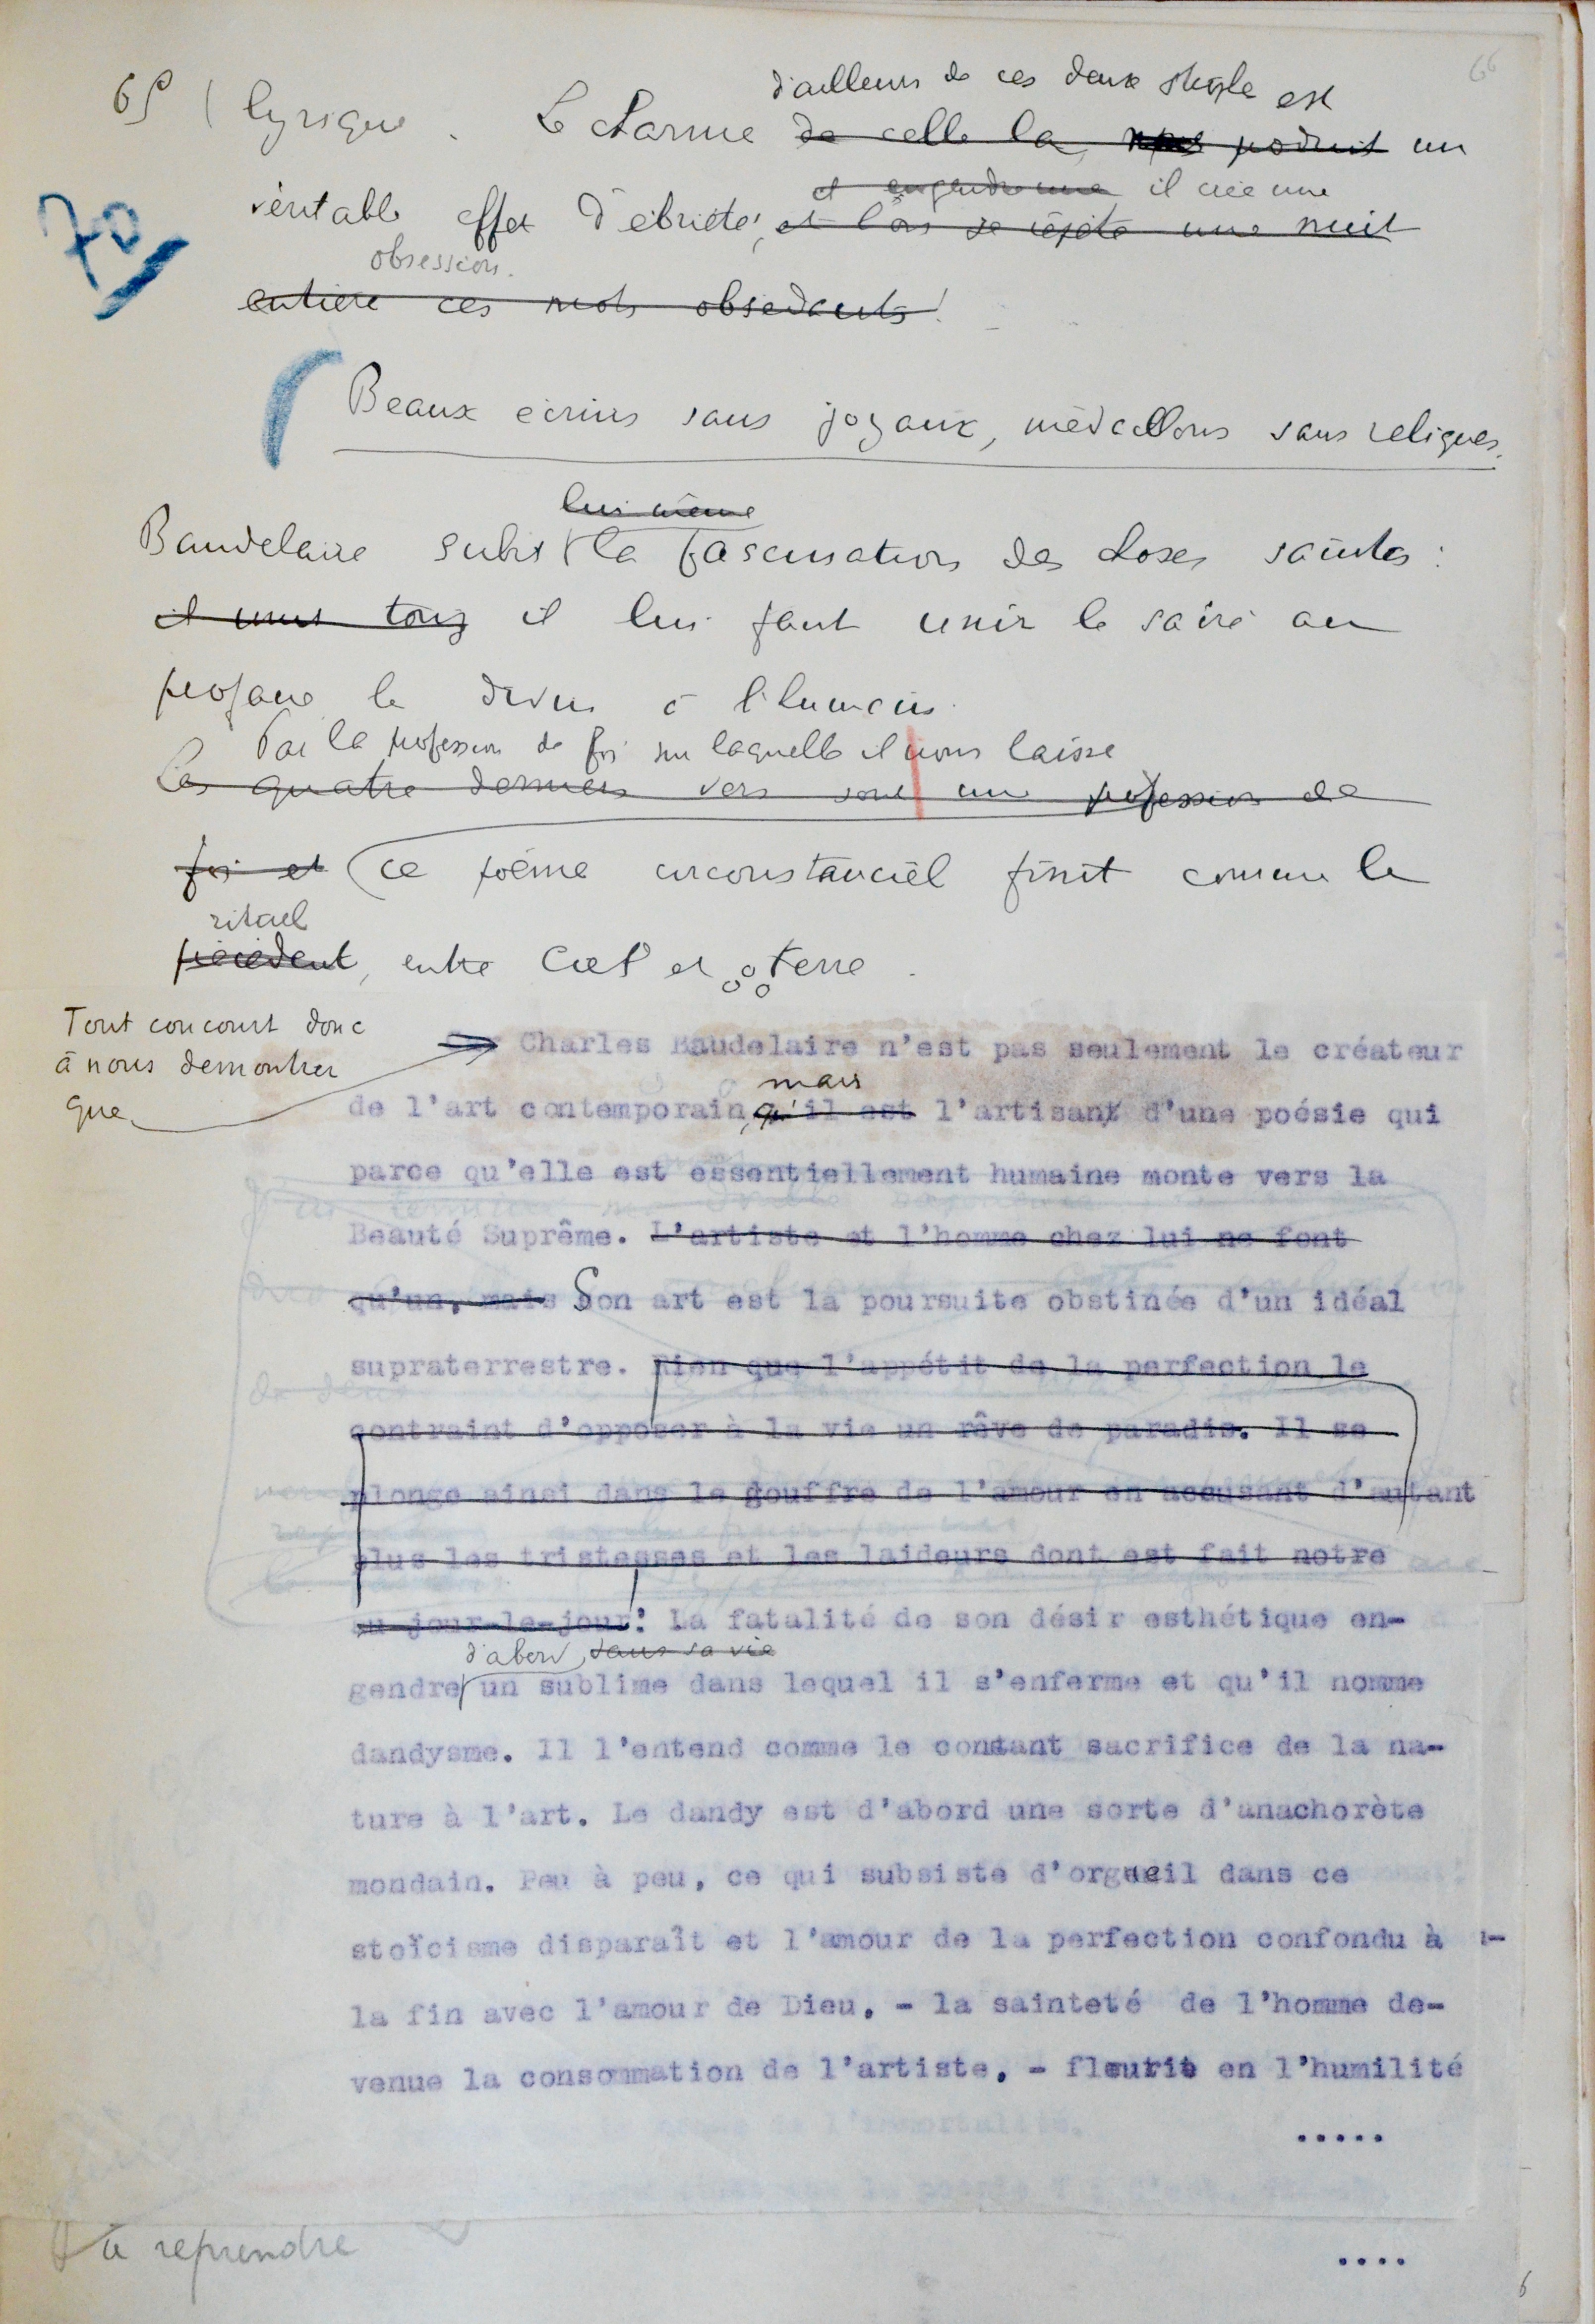 66
d'ailleurs de ces deux est
65 lyrique. Le charme de celle la nous produit un
et engendre une il crée une
70
véritable effet d'ébriété, et l'on se répète une nuit
obsession.
entière ces mots obsedants!
Beaux écrins sans joyaux, médaillons sans reliques.
lui même
Baudelaire subit la fascination des choses saintes :
il nous il lui faut unir le sacré au
profane le divin à l'humain.
Par la profession de foi sur laquelle il nous laisse
Les quatre derniers vers sont une profession de
foi et ce poème circonstanciel finit comme le
rituel
précédent, entre Ciel et terre.
Tout concourt donc
à nous demontrer
que
Charles Baudelaire n'est pas seulement le créateur
mais
de l'art contemporain, qu'il est l'artisant d'une poésie qui
parce qu'elle est essentiellement humaine monte vers la
Beauté Suprême. L'artiste et l'homme chez lui ne font
qu'un, mais Son art est la poursuite obstinée d'un idéal
supraterrestre. Rien que l'appétit de la perfection le
contraint d'opposer à la vie un rêve de paradis. Il se
plonge ainsi dans le gouffre de l'amour en accusant d'autant
plus les tristesses et les laideurs dont est fait notre
au jour-le-jour: La fatalité de son désir esthétique en-
d'abord, dans sa vie
gendre un sublime dans lequel il s'enferme et qu'il nomme
dandysme. Il l'entend comme le constant sacrifice de la na-
ture à l'art. Le dandy est d'abord une sorte d'anachorète
mondain. Peu à peu, ce qui subsiste d'orgueil dans ce
stoïcisme disparaît et l'amour de la perfection confondu à
la fin avec l'amour de Dieu. - la sainteté de l'homme de-
venue la consommation de l'artiste. - fleurit en l'humilité
.....
à reprendre
....
6